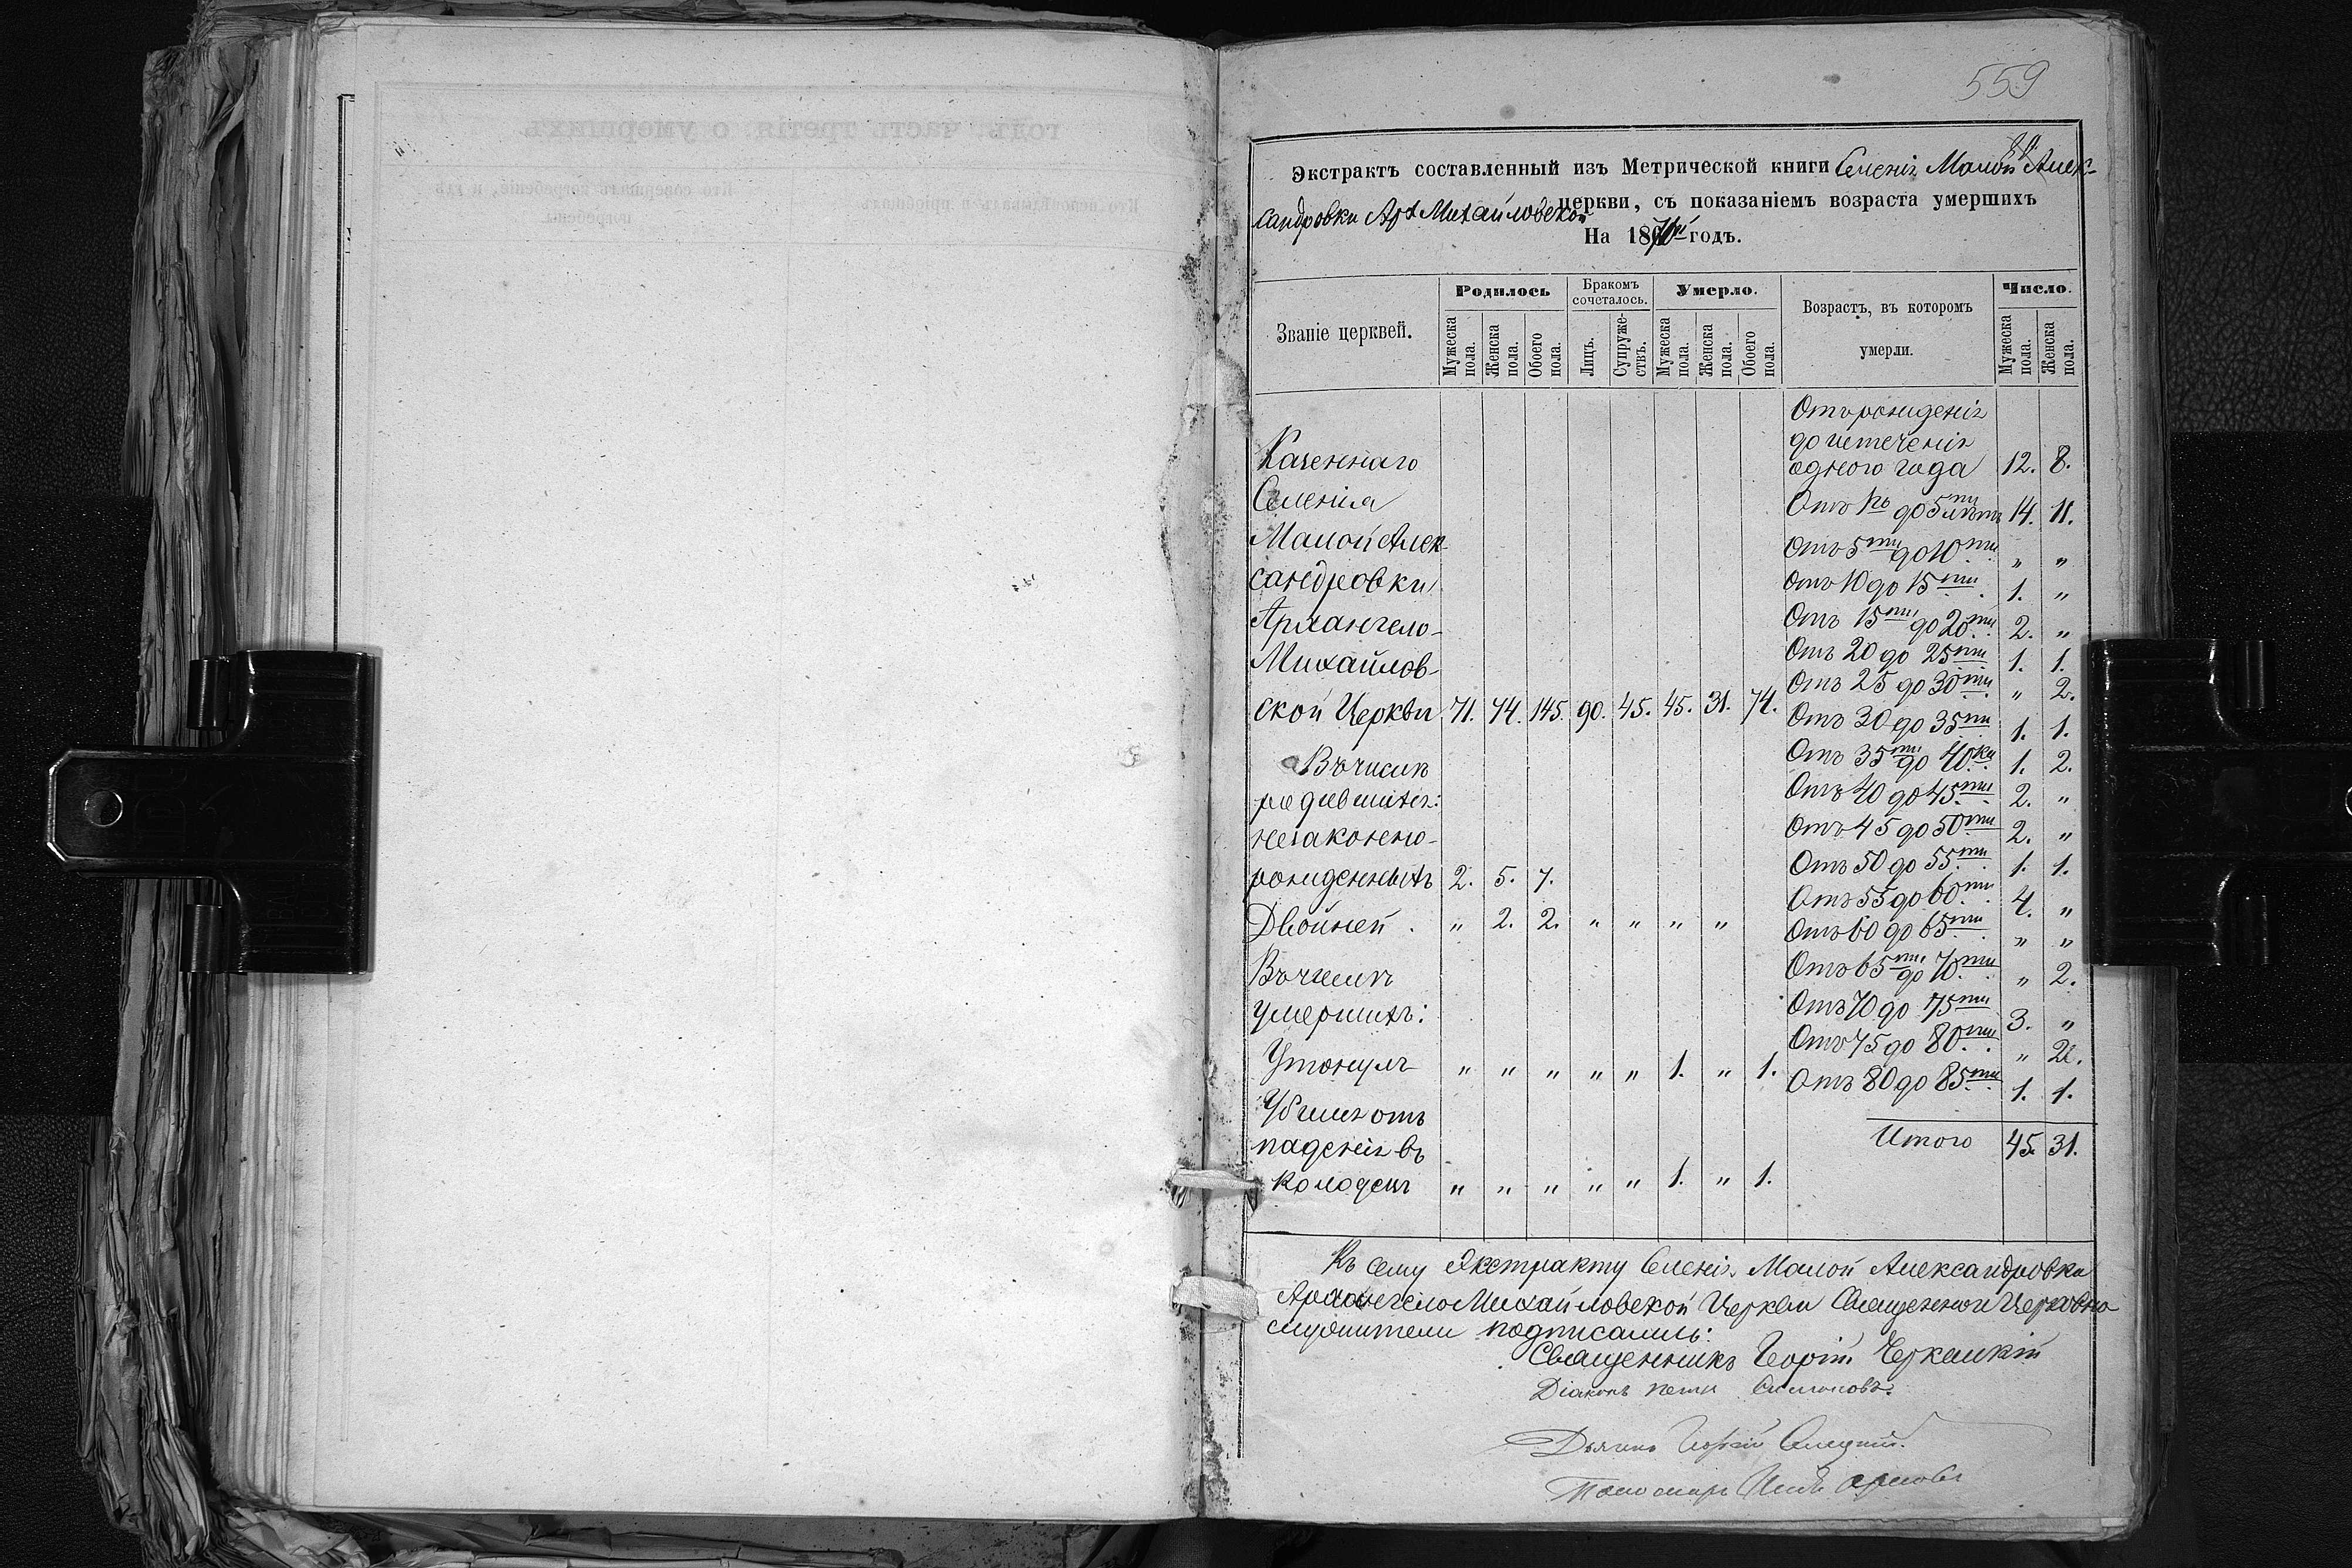 559
Экстрактъ составленный изъ Метрической книги Селенія Малой Алек-
сандровки Арх Михайловской церкви, съ показаніемъ возраста умершихъ
На 1870й годъ.
Званіе церквей.
Родилось
Бракомъ сочеталось.
Умерло.
Возрастъ, въ которомъ умерли.
Число.
Мужеска пола.
Женска пола.
Обоего пола.
Лицъ.
Супружествъ.
Мужеска пола.
Женска пола.
Обоего пола.
Мужеска пола.
Женска пола.
Казеннаго
Селенія
Малой Алек-
сандровки
Архангело-
Михайлов-
ской Церкви 71. 74. 145. 90. 45. 45. 31. 74.
Въ числѣ
родившихся:
незаконно-
рожденныхъ 2. 5. 7.
Двойней . " 2. 2. " " " "
Въ числѣ
умершихъ:
Утонулъ " " " " " 1. " 1.
Убился отъ
паденія въ
колодезь " " " " " 1. " 1.
Отъ рожденія
до истеченія
одного года 12. 8.
Отъ 1го до 5ти лѣтъ 14. 11.
Отъ 5ти до 10ти " "
Отъ 10 до 15ти 1. "
Отъ 15ти до 20ти 2. "
Отъ 20 до 25ти 1. 1.
Отъ 25 до 30ти " 2.
Отъ 30 до 35ти 1. 1.
Отъ 35ти до 40ка 1. 2.
Отъ 40 до 45ти 2. "
Отъ 45 до 50ти 2. "
Отъ 50 до 55ти 1. 1.
Отъ 55 до 60ти 4. "
Отъ 60 до 65ти " "
Отъ 65ти до 70ти " 2.
Отъ 70 до 75ти 3. "
Отъ 75 до 80ти " 2.
Отъ 80 до 85ти 1. 1.
Итого 45. 31.
Къ сему Экстракту Селенія Малой Александровки
Архангело Михайловской Церкви Священно и Церковно
служители подписались:
Священникъ Георгій Черкаскій
Діаконъ Симоновъ.
Дьячекъ Георгій
Пономарь